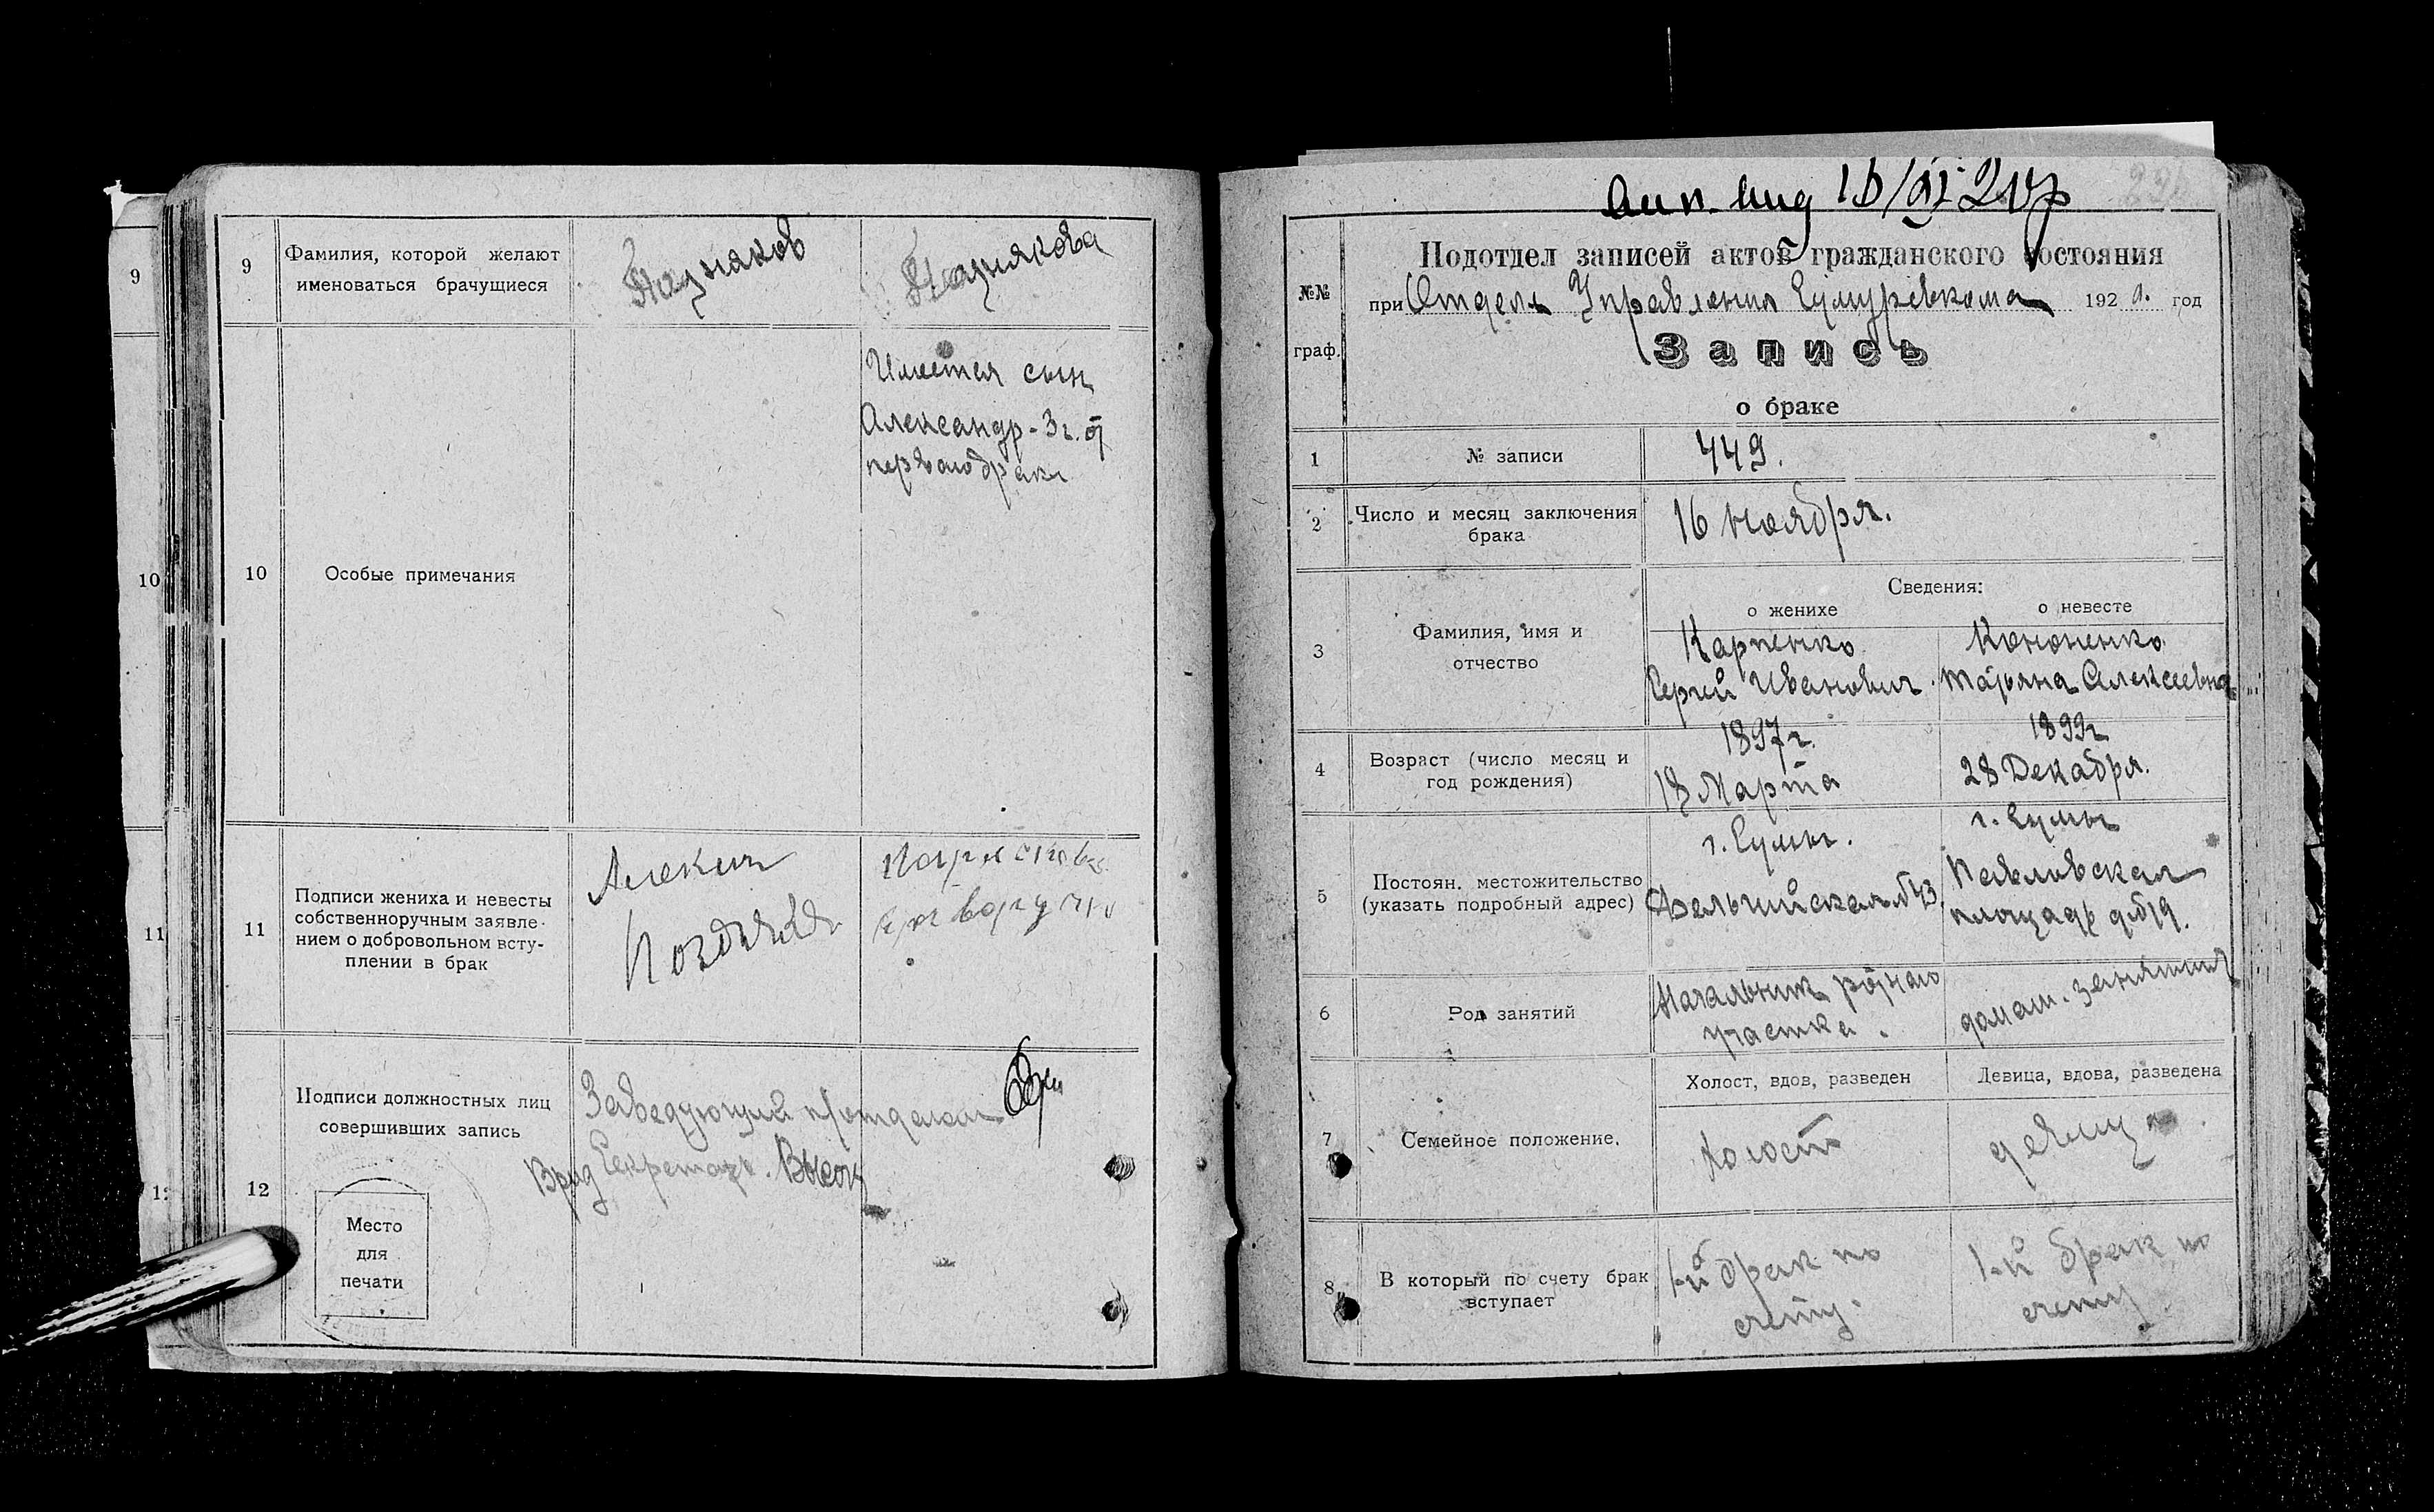 9
10
11
9
Фамилия, которой желают
именоваться брачущиеся
Позняков
Познякова
10
Особые примечания
Имеется сын
Александр - 3 г. от
первого брака
11
Подписи жениха и невесты
собственноручным заявле-
нием о добровольном всту-
плении в брак
12
Подписи должностных лиц
совершивших запись
Заведующий п/отделом
Врид Секретарь.
Место
для
печати
№№
граф.
Подотдел записей актов гражданского состояния
при Отделе Управления Сумуревкома 192 год
Запись
о браке
1
№ записи
449.
2
Число и месяц заключения
брака
16 ноября.
3
Фамилия, имя и
отчество
Сведения:
о женихе
о невесте
Карпенко
Сергей Иванович.
Кононенко
Татьяна Алексеевна
4
Возраст (число месяц и
год рождения)
1897 г.
18 Марта
1899 г
28 Декабря.
5
Постоян. местожительство
(указать подробный адрес)
г. Сумы.
г. Сумы
Павловская
площадь д № 19.
6
Род занятий
Начальник
участка.
домаш. занятия
7
Семейное положение.
Холост, вдов, разведен
Девица, вдова, разведена
холост
девица.
8
В который по счету брак
вступает
1-й брак по
счету.
1-й брак по
счету